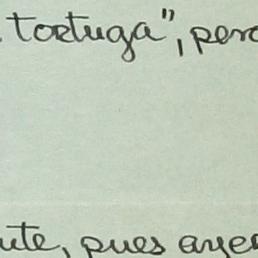 tortuga", pero
ute, pues ayer